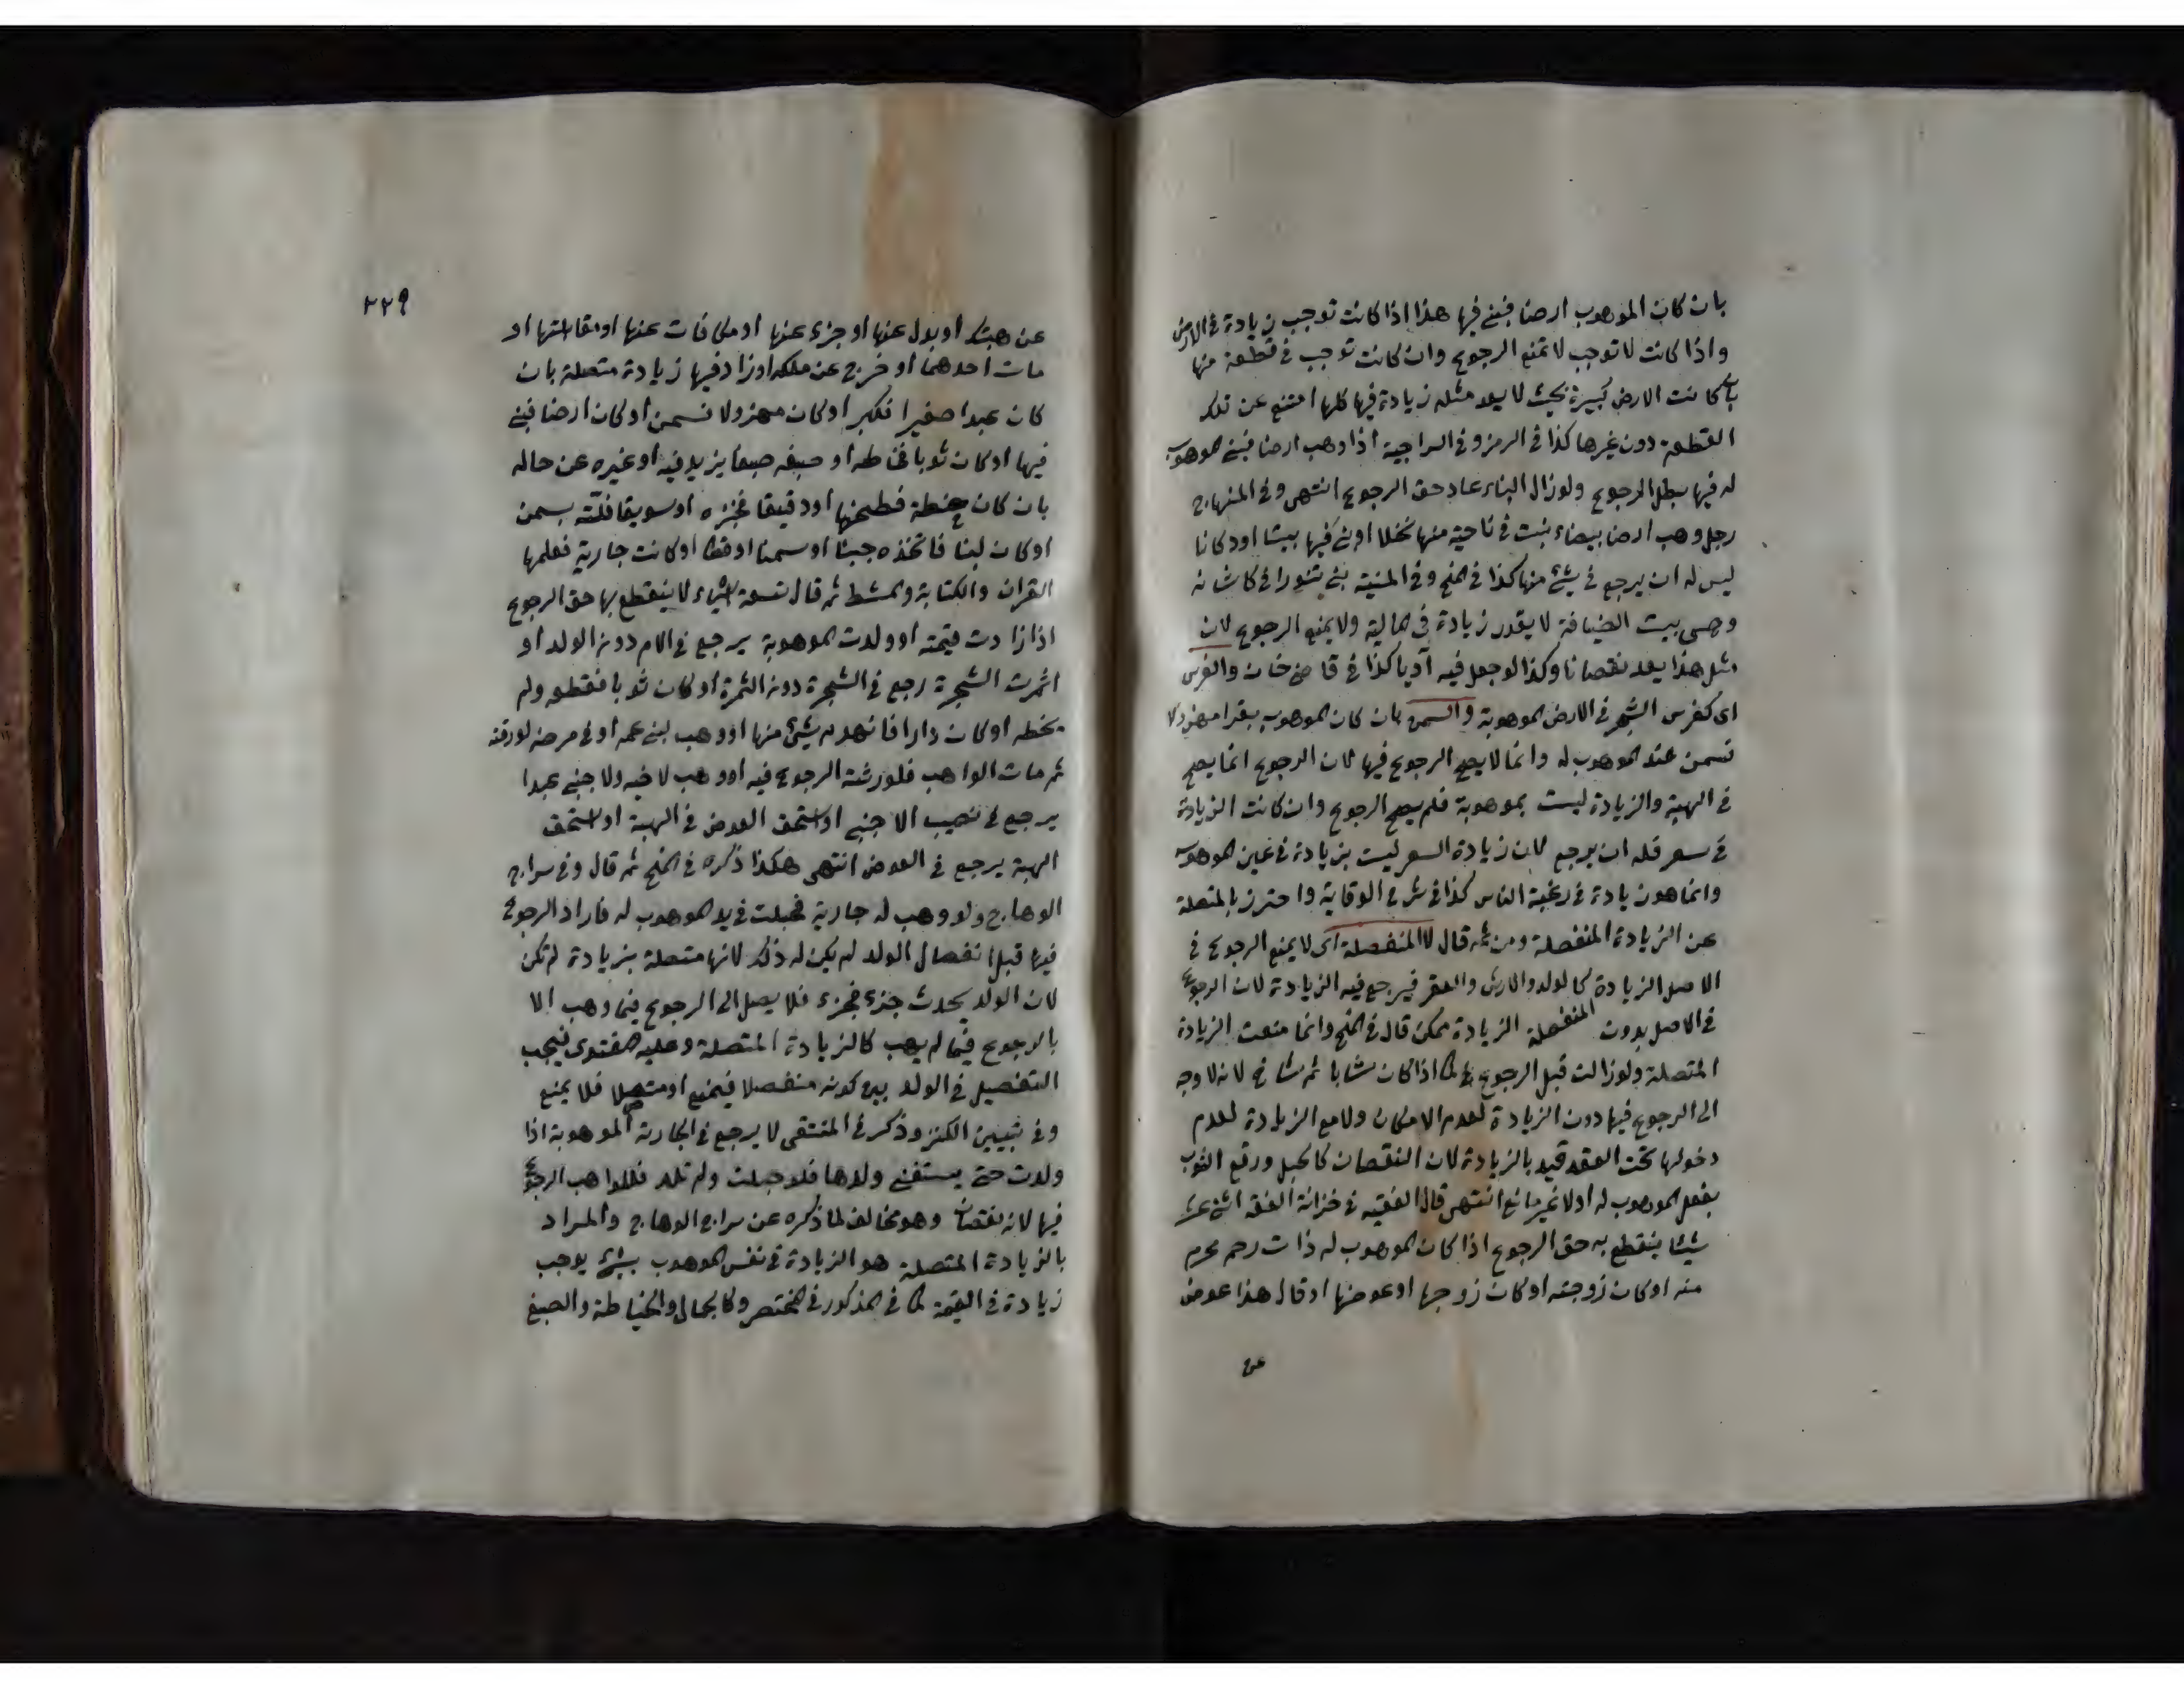 بان كان الموهوب ارضا فبنى فيها هذا اذا كانت توجب زيادة في الارض
واذا كانت لا توجب لا تمنع الرجوع وان كانت توجب في قطعة منها
بان كانت الارض كبيرة بحيث لا يعد مثله زيادة فيها كلها امتنع عن تلك
القطعة دون غيرها كذا في الرمز وفي السراجية اذا وهب ارضا فبنى الموهوب
له فيها بطل الرجوع ولو زال البناء عاد حق الرجوع انتهى وفي المنهاج
رجل وهب ارضا بيضاء نبت في ناحية منها نخلا او بنى فيها بيتا او دكانا
ليس له ان يرجع في شئ منها كذا في المنح وفي المنية بنى تنورا في كاشانه
وهى بيت الضيافة لا يقدر زيادة في المالية ولا يمنع الرجوع لان
مثل هذا يعد نقصانا وكذا لو جعل فيه آريا كذا في قاضي خان والغرس
اى كغرس الشجر في الارض الموهوبة والسمن بان كان الموهوب بقرا مهزولا
فسمن عند الموهوب له وانما لا يصح الرجوع فيها لان الرجوع انما يصح
في الهبة والزيادة ليست بموهوبة فلم يصح الرجوع وان كانت الزيادة
في سعر فله ان يرجع لان زيادة السعر ليست بزيادة في عين الموهوب
وانما هو زيادة في رغبة الناس كذا في شرح الوقاية واحترز بالمتصلة
عن الزيادة المنفصلة ومن ثمه قال لا المنفصلة اى لا يمنع الرجوع في
الاصل الزيادة كالولد والارش والعقر فيرجع فيه الزيادة لان الرجوع
في الاصل بدون المنفصلة الزيادة ممكن قال في المنح وانما منعت الزيادة
المتصلة ولو زالت قبل الرجوع كما اذا كان شابا ثم شاخ لانه لا وجه
الى الرجوع فيها دون الزيادة لعدم الامكان ولا مع الزيادة لعدم
دخولها تحت العقد قيد بالزيادة لان النقصان كالحبل ورقع الثوب
بفعل الموهوب له اولا غير مانع انتهى قال الفقيه في خزانة الفقه اثنى عشر
شيئا ينقطع به حق الرجوع اذا كان الموهوب له ذات رحم محرم
منه او كان زوجته او كان زوجها او عوضها او قال هذا عوض
عن
٢٢٩
عن هبتك او بدل عنها او جزء عنها او مكافات عنها او مقابلتها او
مات احدهما او خرج عن ملكه او زاد فيها زيادة متصلة بان
كان عبدا صغيرا فكبر او كان مهزولا فسمن او كان ارضا فبنى
فيها او كان ثوبا فخاطه او صبغه صبغا يزيد فيه او غيره عن حاله
بان كان حنطة فطحنها او دقيقا فخبزه او سويقا فلته بسمن
او كان لبنا فاتخذه جبنا او سمنا او اقطا او كانت جارية فعلمها
القران والكتابة والمشط ثم قال تسعة اشياء لا ينقطع بها حق الرجوع
اذا زادت قيمته او ولدت الموهوبة يرجع في الام دون الولد او
اثمرت الشجرة رجع في الشجرة دون الثمرة او كان ثوبا فقطعه ولم
يخطه او كان دارا فانهدم شئ منها او وهب لبنى عمه او في مرضه لورثته
ثم مات الواهب فلورثته الرجوع فيه او وهب لاخيه ولاجنبى عبدا
يرجع في نصيب الاجنبى او استحق العوض في الهبة او استحق
الهبة يرجع في العوض انتهى هكذا ذكره في المنح ثم قال وفي سراج
الوهاج ولو وهب له جارية فحبلت في يد الموهوب له فاراد الرجوع
فيها قبل انفصال الولد لم يكن له ذلك لانها متصلة بزيادة لم تكن
لان الولد يحدث جزء فجزء فلا يصل الى الرجوع فيما وهب الا
بالرجوع فيما لم يهب كالزيادة المتصلة وعليه الفتوى فيجب
التفصيل في الولد بين كونه منفصلا فيمنع او متصلا فلا يمنع
وفي تبيين الكنز وذكر في المنتقى لا يرجع في الجارية الموهوبة اذا
ولدت حتى يستغنى ولدها فلو حبلت ولم تلد فللواهب الرجوع
فيها لانه نقصان وهو مخالف لما ذكره عن سراج الوهاج والمراد
بالزيادة المتصلة هو الزيادة في نفس الموهوب بشئ يوجب
زيادة في القيمة كما في المذكور في المختصر وكالجمال والخياطة والصبغ